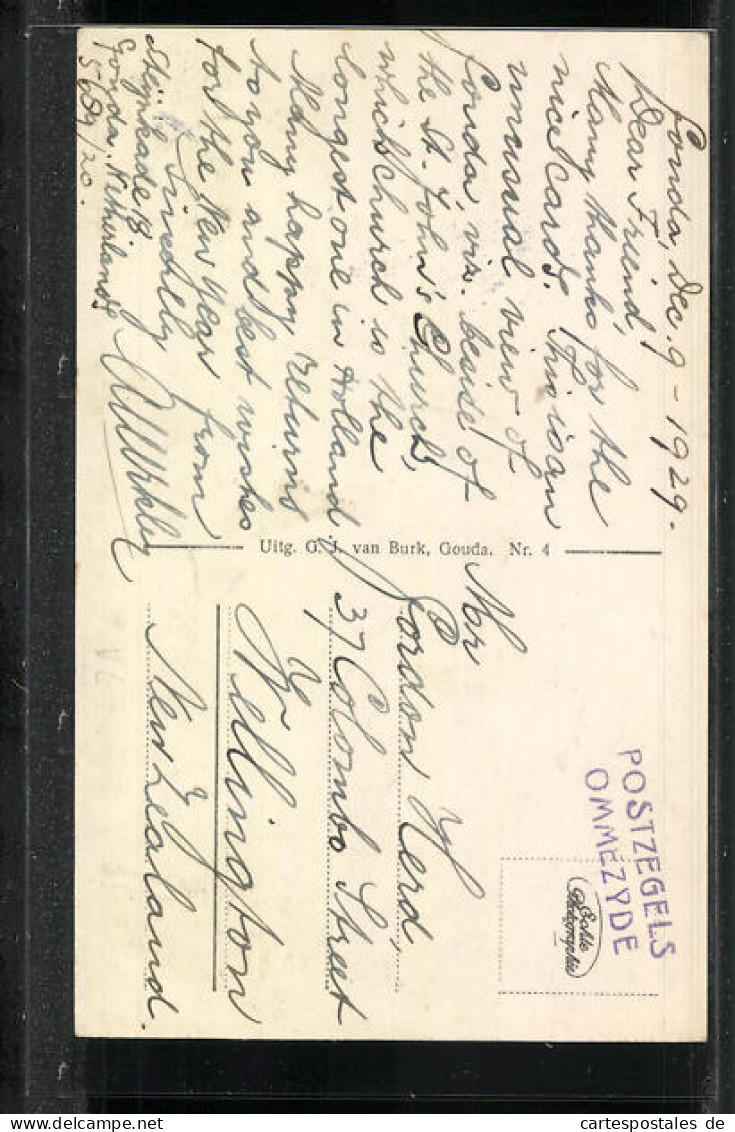 Gouda, Dec. 9 - 1929.
Dear Friend,
Many thanks for the
nice cards. This is an
unusual view of
Gouda, viz. beside of
the St. John's Church,
which church is the
longest one in Holland.
Many happy returns
to you and best wishes
for the New Year from
Sincerely
Gouda. Netherlands
Uitg. G. J. van Burk, Gouda. Nr. 4
Mr
Gordon Herd,
37 Colombo Street
Wellington
New Zealand.
POSTZEGELS
OMMEZYDE
Echte
Photographie
cartespostales de